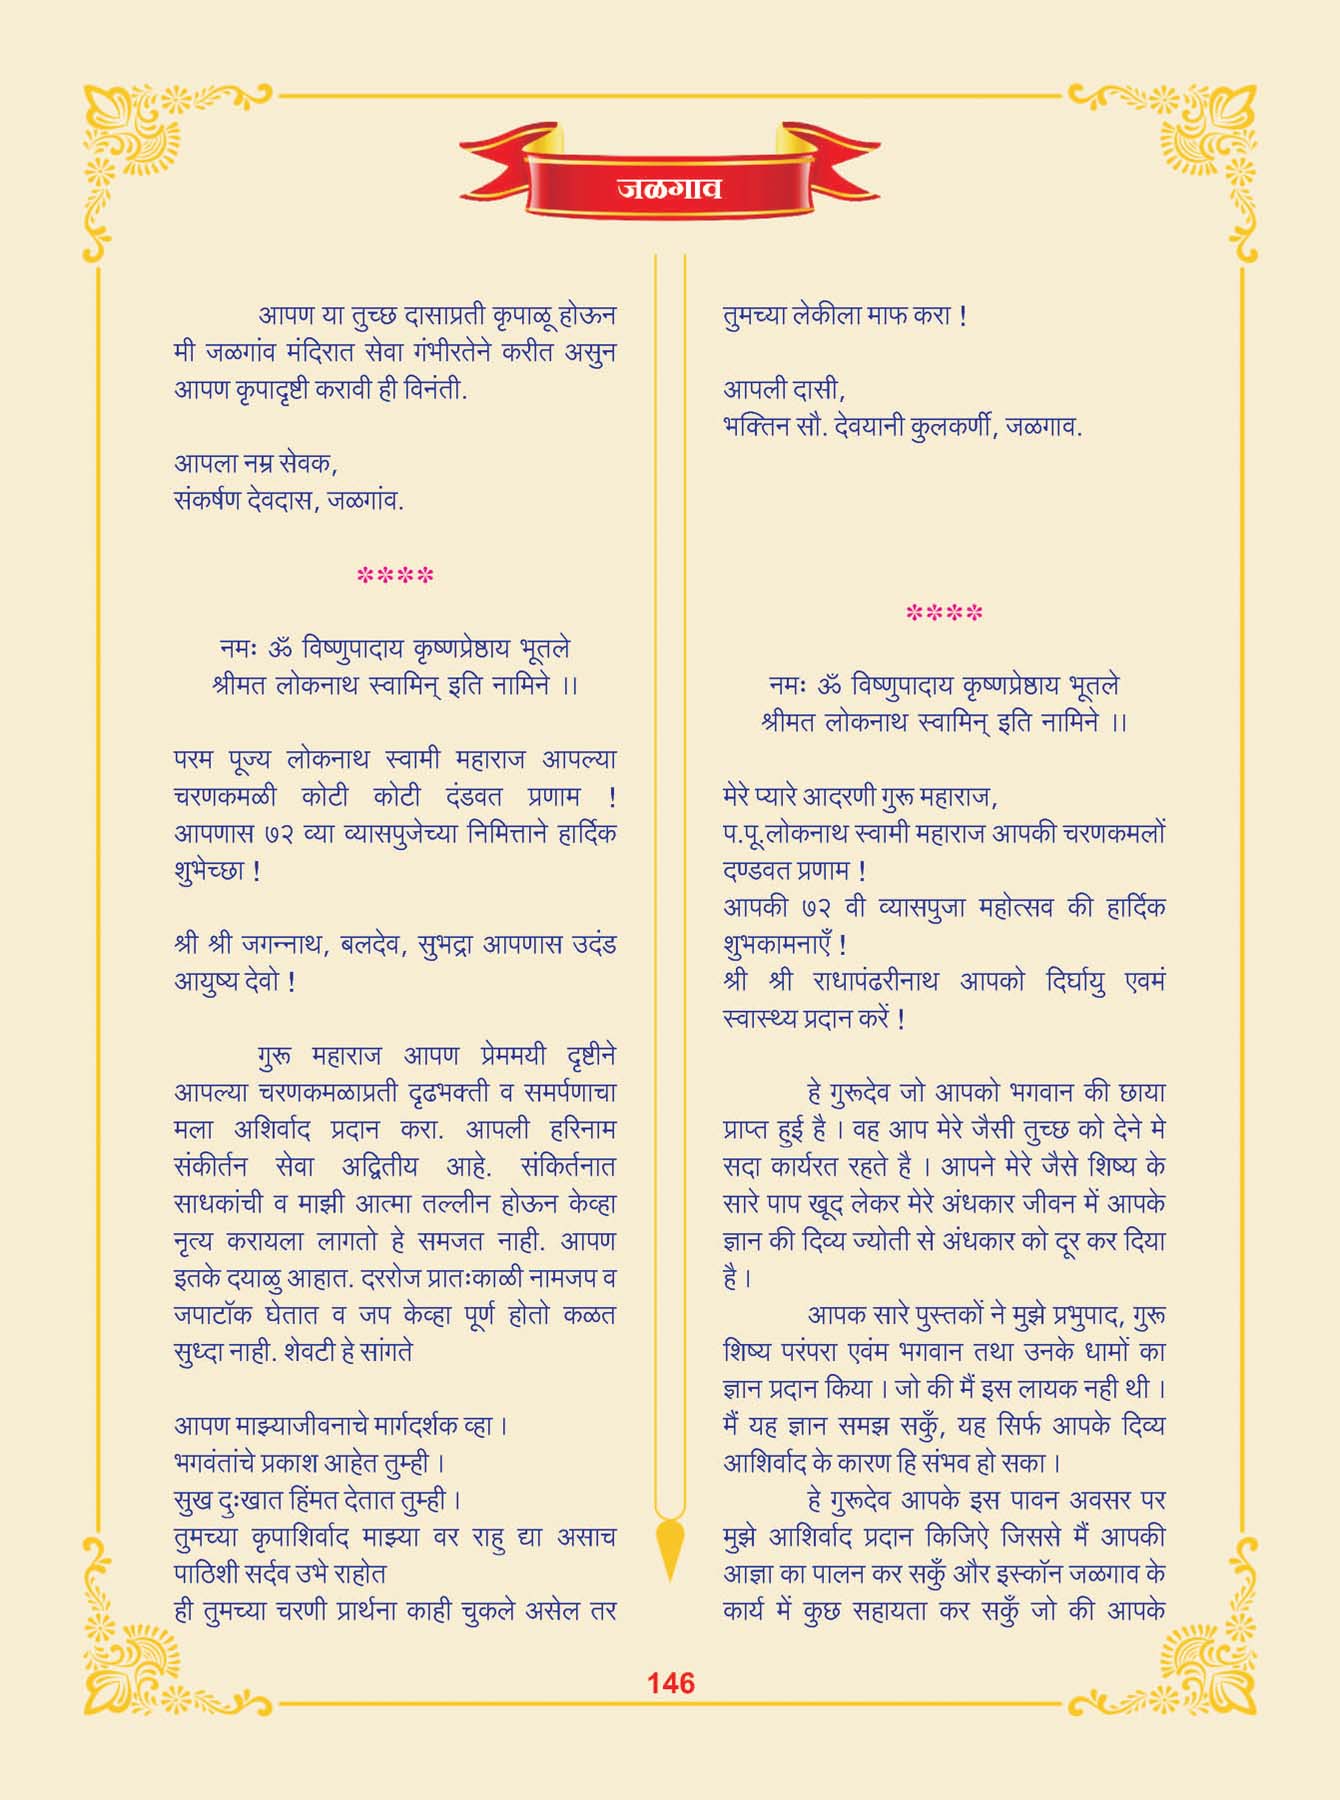 जळगाव
आपण या तुच्छ दासाप्रती कृपाळू होऊन
मी जळगांव मंदिरात सेवा गंभीरतेने करीत असुन
आपण कृपादृष्टी करावी ही विनंती.
आपला नम्र सेवक,
संकर्षण देवदास, जळगांव.
****
नमः ॐ विष्णुपादाय कृष्णप्रेष्ठाय भूतले
श्रीमत लोकनाथ स्वामिन् इति नामिने ।।
परम पूज्य लोकनाथ स्वामी महाराज आपल्या
चरणकमळी कोटी कोटी दंडवत प्रणाम !
आपणास ७२ व्या व्यासपुजेच्या निमित्ताने हार्दिक
शुभेच्छा !
श्री श्री जगन्नाथ, बलदेव, सुभद्रा आपणास उदंड
आयुष्य देवो !
गुरू महाराज आपण प्रेममयी दृष्टीने
आपल्या चरणकमळाप्रती दृढभक्ती व समर्पणाचा
मला अशिर्वाद प्रदान करा. आपली हरिनाम
संकीर्तन सेवा अद्वितीय आहे. संकिर्तनात
साधकांची व माझी आत्मा तल्लीन होऊन केव्हा
नृत्य करायला लागतो हे समजत नाही. आपण
इतके दयाळु आहात. दररोज प्रातःकाळी नामजप व
जपाटॉक घेतात व जप केव्हा पूर्ण होतो कळत
सुध्दा नाही. शेवटी हे सांगते
आपण माझ्याजीवनाचे मार्गदर्शक व्हा ।
भगवंतांचे प्रकाश आहेत तुम्ही ।
सुख दुःखात हिंमत देतात तुम्ही ।
तुमच्या कृपाशिर्वाद माझ्या वर राहु द्या असाच
पाठिशी सर्दव उभे राहोत
ही तुमच्या चरणी प्रार्थना काही चुकले असेल तर
तुमच्या लेकीला माफ करा !
आपली दासी,
भक्तिन सौ. देवयानी कुलकर्णी, जळगाव.
****
नमः ॐ विष्णुपादाय कृष्णप्रेष्ठाय भूतले
श्रीमत लोकनाथ स्वामिन् इति नामिने ।।
मेरे प्यारे आदरणी गुरू महाराज,
प.पू.लोकनाथ स्वामी महाराज आपकी चरणकमलों
दण्डवत प्रणाम !
आपकी ७२ वी व्यासपुजा महोत्सव की हार्दिक
शुभकामनाएँ !
श्री श्री राधापंढरीनाथ आपको दिर्घायु एवमं
स्वास्थ्य प्रदान करें !
हे गुरूदेव जो आपको भगवान की छाया
प्राप्त हुई है । वह आप मेरे जैसी तुच्छ को देने मे
सदा कार्यरत रहते है । आपने मेरे जैसे शिष्य के
सारे पाप खूद लेकर मेरे अंधकार जीवन में आपके
ज्ञान की दिव्य ज्योती से अंधकार को दूर कर दिया
है ।
आपक सारे पुस्तकों ने मुझे प्रभुपाद, गुरू
शिष्य परंपरा एवंम भगवान तथा उनके धामों का
ज्ञान प्रदान किया । जो की मैं इस लायक नही थी ।
मैं यह ज्ञान समझ सकुँ, यह सिर्फ आपके दिव्य
आशिर्वाद के कारण हि संभव हो सका ।
हे गुरूदेव आपके इस पावन अवसर पर
मुझे आशिर्वाद प्रदान किजिऐ जिससे मैं आपकी
आज्ञा का पालन कर सकुँ और इस्कॉन जळगाव के
कार्य में कुछ सहायता कर सकुँ जो की आपके
146